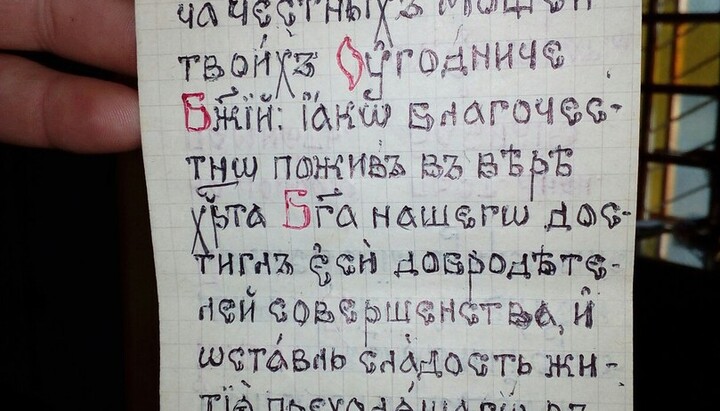 ча честны́хъ мощей
твои́хъ Оу҆го́дниче
Бж҃їй: ꙗ҆́кѡ благочес-
тнѡ пожи́въ въ вѣ́рѣ
хрⷭ҇та Бг҃а нашегѡ дос-
тиглъ є҆сѝ добродѣте-
лей соверше́нства, и҆
ѡста́вль сла́дость жи-
тїѧ̀ преходѧ́щагѡ въ